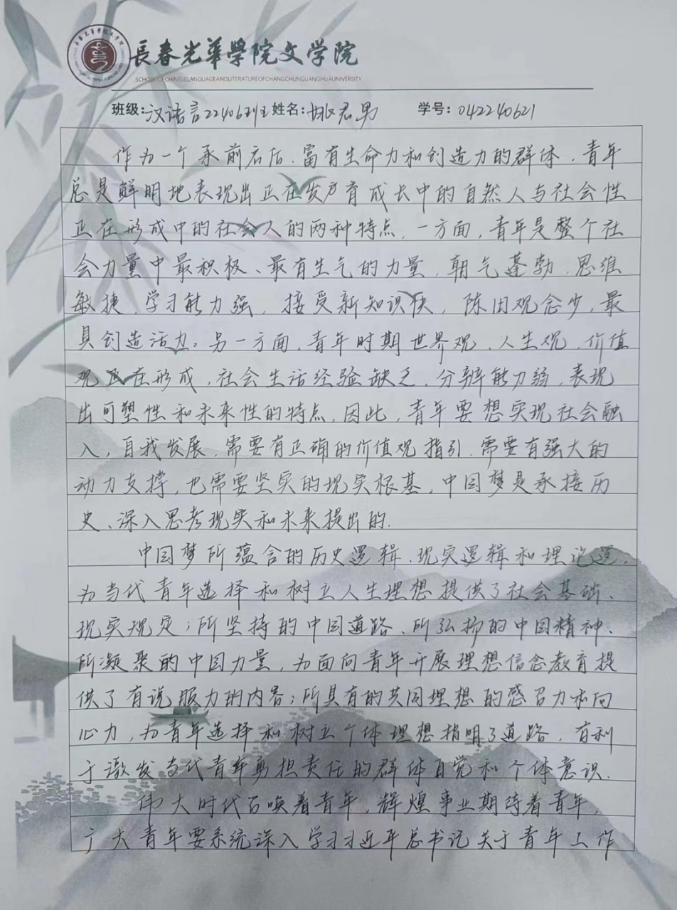 長春光華學院文学院
SCHOOL OF CHINESE LANGUAGE AND LITERATURE OF CHANGCHUN GUANGHUA UNIVERSITY
班级:汉语言22406班 姓名:姚君男 学号:042240621
作为一个承前启后、富有生命力和创造力的群体，青年
总是鲜明地表现出正在发育成长中的自然人与社会性
正在形成中的社会人的两种特点，一方面，青年是整个社
会力量中最积极、最有生气的力量，朝气蓬勃，思维
敏捷，学习能力强，接受新知识快，陈旧观念少，最
具创造活力。另一方面，青年时期世界观，人生观，价值
观正在形成，社会生活经验缺乏，分辨能力弱，表现
出可塑性和未来性的特点，因此，青年要想实现社会融
入，自我发展，需要有正确的价值观指引，需要有强大的
动力支撑，也需要坚实的现实根基，中国梦是承接历
史、深入思考现实和未来提出的.
中国梦所蕴含的历史逻辑、现实逻辑和理论逻，
为当代青年选择和树立人生理想提供了社会基础、
现实规定；所坚持的中国道路、所弘扬的中国精神、
所凝聚的中国力量，为面向青年开展理想信念教育提
供了有说服力的内容；所具有的共同理想的感召力和向
心力，为青年选择和树立个体理想指明了道路，有利
于激发当代青年勇担责任的群体自觉和个体意识.
伟大时代召唤着青年，辉煌事业期待着青年，
广大青年要系统深入学习习近平总书记关于青年工作